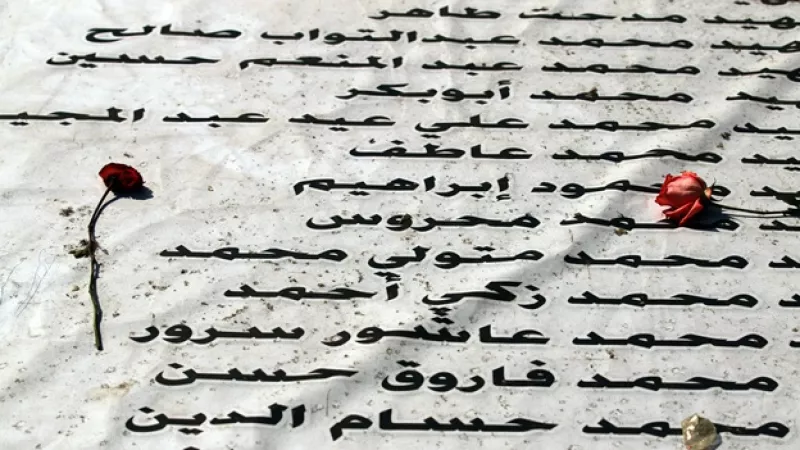 هيد مدحت طاهر
هيد محمد عبدالتواب صالح
هيد محمد عبد المنعم حسين
يد محمد أبوبكر
يد محمد علي عيد عبد المجيـ
يد محمد عاطف
د محمود إبراهيم
د محمد محروس
د محمد متولي محمد
د محمد زكي أحمد
محمد عاشور سرور
محمد فاروق حسن
محمد حسام الدين